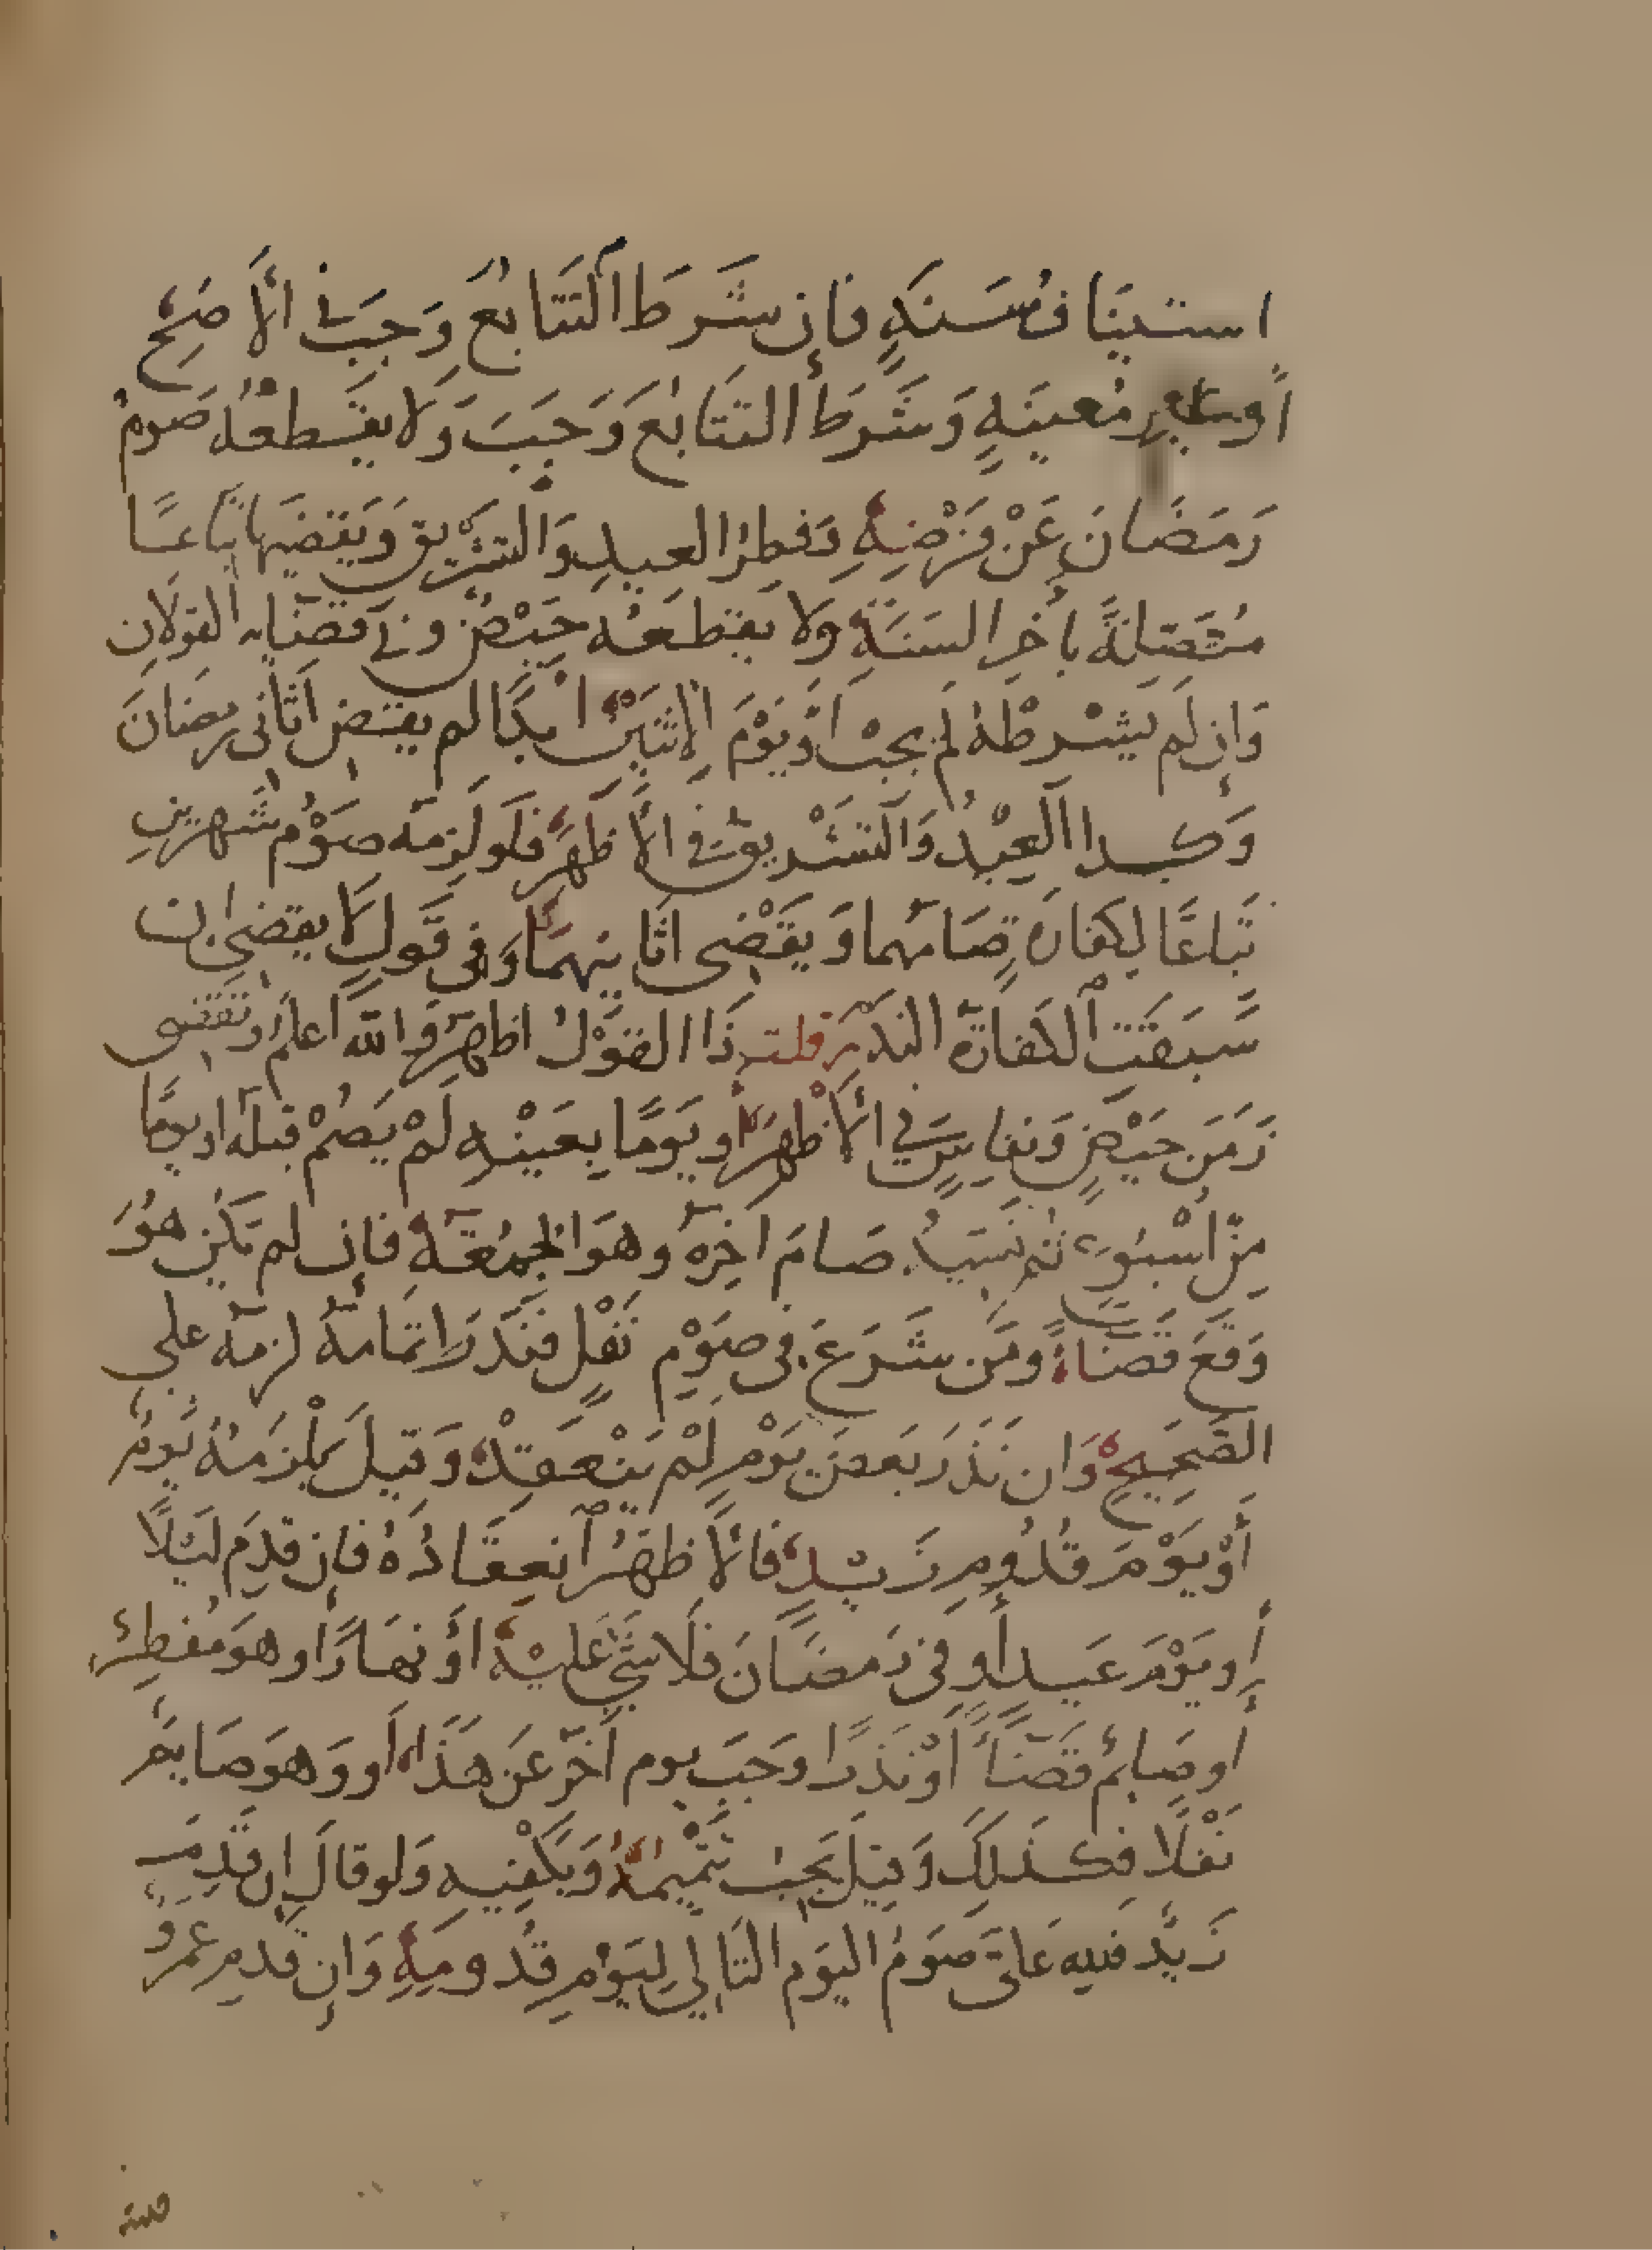 استينَافُ سَنَةٍ فَإِن شَرَطَ اَلتَتَابُعَ وَجَبَ فِي الأَصَحِّ
أو معينَةٍ وَشَرَطَ التتَابُعَ وَجَبَ وَلا يقطَعُهُ صَومُ
رَمَضَانَ عَنْ فَرْضِهِ وَفطرُ العيدِ وَالتشْرِيقِ وَيَقضيهَا تبَاعًا
مُتَّصِلةً بأخر السَنَةِ ولا يقطعُه حَيْضٌ وفي قضَايه القولان
وَإن لَم يَشْرطْهُ لَم يجبْ أَوْ يَوْمَ الاثنَيْنِ أبَدًا لم يقض أثاني رمضَانَ
وَكدا اَلعِيْدُ وَالتشْريق في الأَظهَرِ فلَو لَزمَه صَوْمُ شهرَين
تَباعًا لِكفارَةٍ صَامَهما وَيقَضى أثَانيهمَا وَفي قَولٍ لا يقضي إن
سَبَقَتِ اَلكفارَة النذرَ قلت ذَا القَوْلُ اظهرُ وَالله اعلم أو تقضى
زَمَن حَيْضٍ وَنفاسٍ في الأَظْهَرِ أو يَوْمًا بعَيْنهِ لَمْ يَصُمْ قبلَه او يومًا
مِنْ أُسْبُوعٍ ثم نَسَيهُ صَامَ اخِرهُ وهوَ الجمُعَةُ فإن لم تكن هُوَ
وَقَعَ قَضَاءً ومَن شَرَعَ في صَوْمِ نَفْلٍ فنَذَرَ اتمامَهُ لزمَه على
الصَحِيحِ وَان نَذَرَ بَعضَ يَوْمٍ لَمْ يَنْعَقِدْ وَقيلَ يَلْزَمُهُ يَومٌ
أَوْ يَوْمَ قُدُومِ زَيْدٍ فالأَظهَرُ اَنعِقَادُهُ فإن قدِمَ لَيْلًا
أو يَوْمَ عَيدٍ أو في رَمضَانَ فَلَا شَيَ عَليْهِ أوْ نهَارًا وهوَ مُفطِرٌ
أو صَايمٌ قضَاً أوْ نذرًا وجَبَ يوم اخَر عَن هَذَا أو وَهوَ صَايمٌ
نَفْلًا فكذَلِكَ وَقيلَ يَجبُ تَتْمِيمُهُ وَيَكْفِيهِ وَلو قالَ إن قَدِمَ
زَيْد فلِلهِ عَلَيَّ صَومُ اليَوم التَالي لِيَوْمِ قُدومِهِ وَإن قَدِمَ عَمرٌو